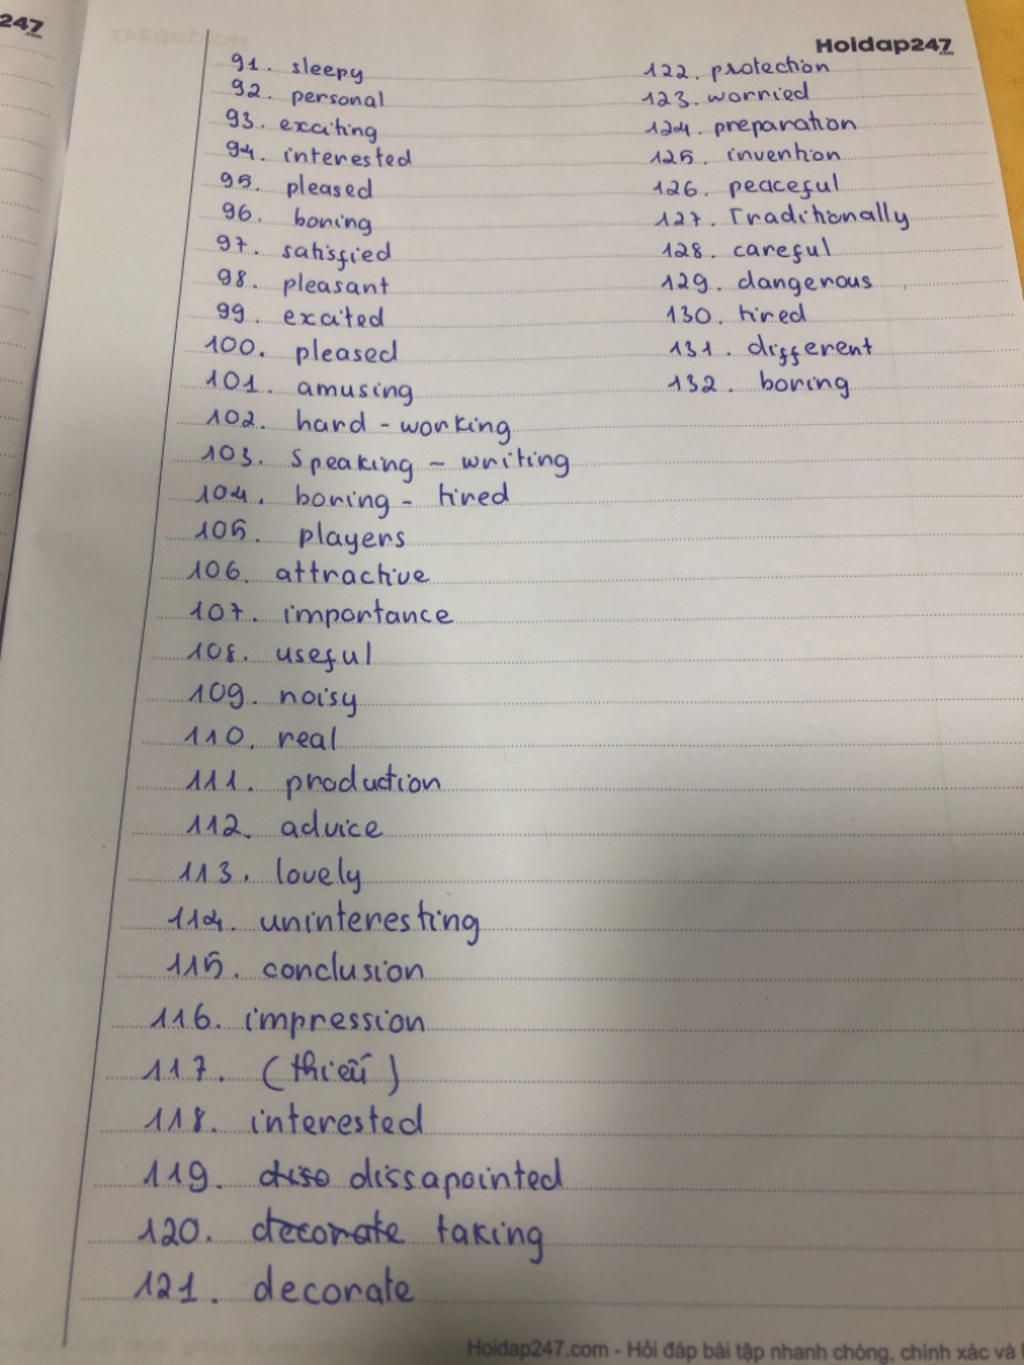 247
Hoidap247
91. sleepy
92. personal
93. exciting
94. interested
95. pleased
96. boring
97. satisfied
98. pleasant
99. excited
100. pleased
101. amusing
102. hard - working
103. Speaking - writing
104. boring - tired
105. players
106. attractive
107. importance
108. useful
109. noisy
110. real
111. production
112. advice
113. lovely
114. uninteresting
115. conclusion
116. impression
117. (thiếu)
118. interested
119. diso dissapointed
120. decorate taking
121. decorate
122. protection
123. worried
124. preparation
125. invention
126. peaceful
127. Traditionally
128. careful
129. dangerous
130. tired
131. different
132. boring
Hoidap247.com - Hỏi đáp bài tập nhanh chóng, chính xác và